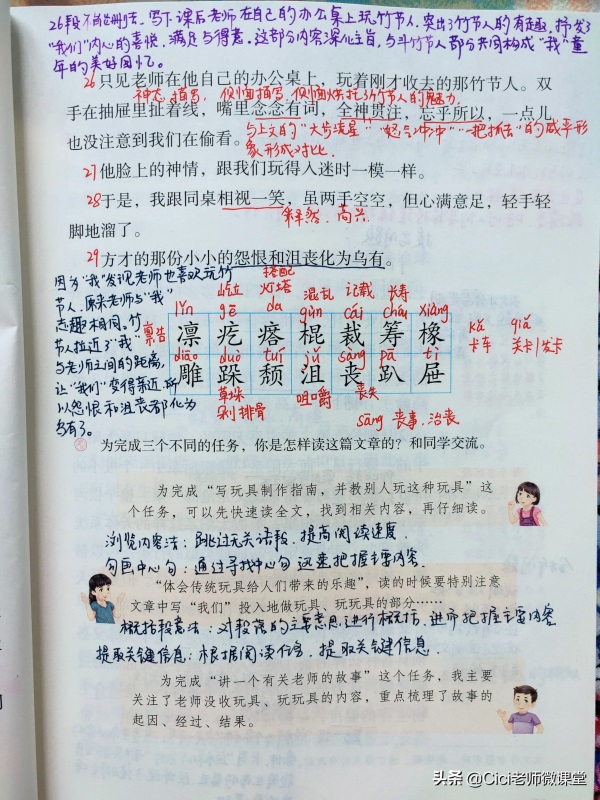 26段不能删除。写下课后老师在自己的办公桌上玩竹节人。突出了竹节人的有趣,抒发了
"我们"内心的喜悦、满足与得意。这部分内容深化主旨,与斗竹节人部分共同构成"我"童
年的美好回忆。
26只见老师在他自己的办公桌上,玩着刚才收去的那竹节人。双
神态描写,侧面描写,侧面烘托了竹节人的魅力。
手在抽屉里扯着线,嘴里念念有词,全神贯注,忘乎所以,一点儿
也没注意到我们在偷看。
与上文的"大步流星""怒气冲冲""一把抓去"的威严形
象形成对比。
27他脸上的神情,跟我们玩得入迷时一模一样。
28于是,我跟同桌相视一笑,虽两手空空,但心满意足,轻手轻
脚地溜了。
释然、高兴
29方才的那份小小的怨恨和沮丧化为乌有。
因为"我"发现老师也喜欢玩竹
节人,原来老师与"我"
志趣相同。竹
节人拉近了"我"
与老师之间的距离,
让"我们"变得亲近,所
以怨恨和沮丧都化为
乌有了。
屹立 搭配 灯塔 混乱 记载 长寿
lǐn gē da gùn cái chóu xiàng
禀告
凛疙瘩棍裁筹橡
kǎ qiǎ
卡车 关卡|发卡
diāo duò tuí jǔ sàng pā tì
雕跺颓沮丧趴屉
草垛
剁排骨
咀嚼
丧失
sāng 丧事、治丧
为完成三个不同的任务,你是怎样读这篇文章的?和同学交流。
为完成"写玩具制作指南,并教别人玩这种玩具"这
个任务,可以先快速读全文,找到相关内容,再仔细读。
浏览内容法:跳过无关语段,提高阅读速度。
勾画中心句:通过寻找中心句迅速把握主要内容。
"体会传统玩具给人们带来的乐趣",读的时候要特别注意
文章中写"我们"投入地做玩具、玩玩具的部分……
概括段意法:对段落的主要意思进行概括,进而把握主要内容
提取关键信息:根据阅读任务,提取关键信息。
为完成"讲一个有关老师的故事"这个任务,我主要
关注了老师没收玩具、玩玩具的内容,重点梳理了故事的
起因、经过、结果。
头条 @Cici老师微课堂